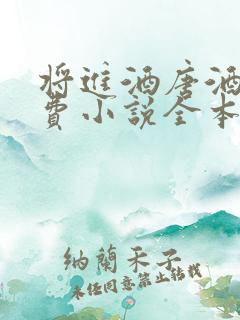 将进酒唐酒
费小说全本
纳兰禾子
未经同意禁止转载